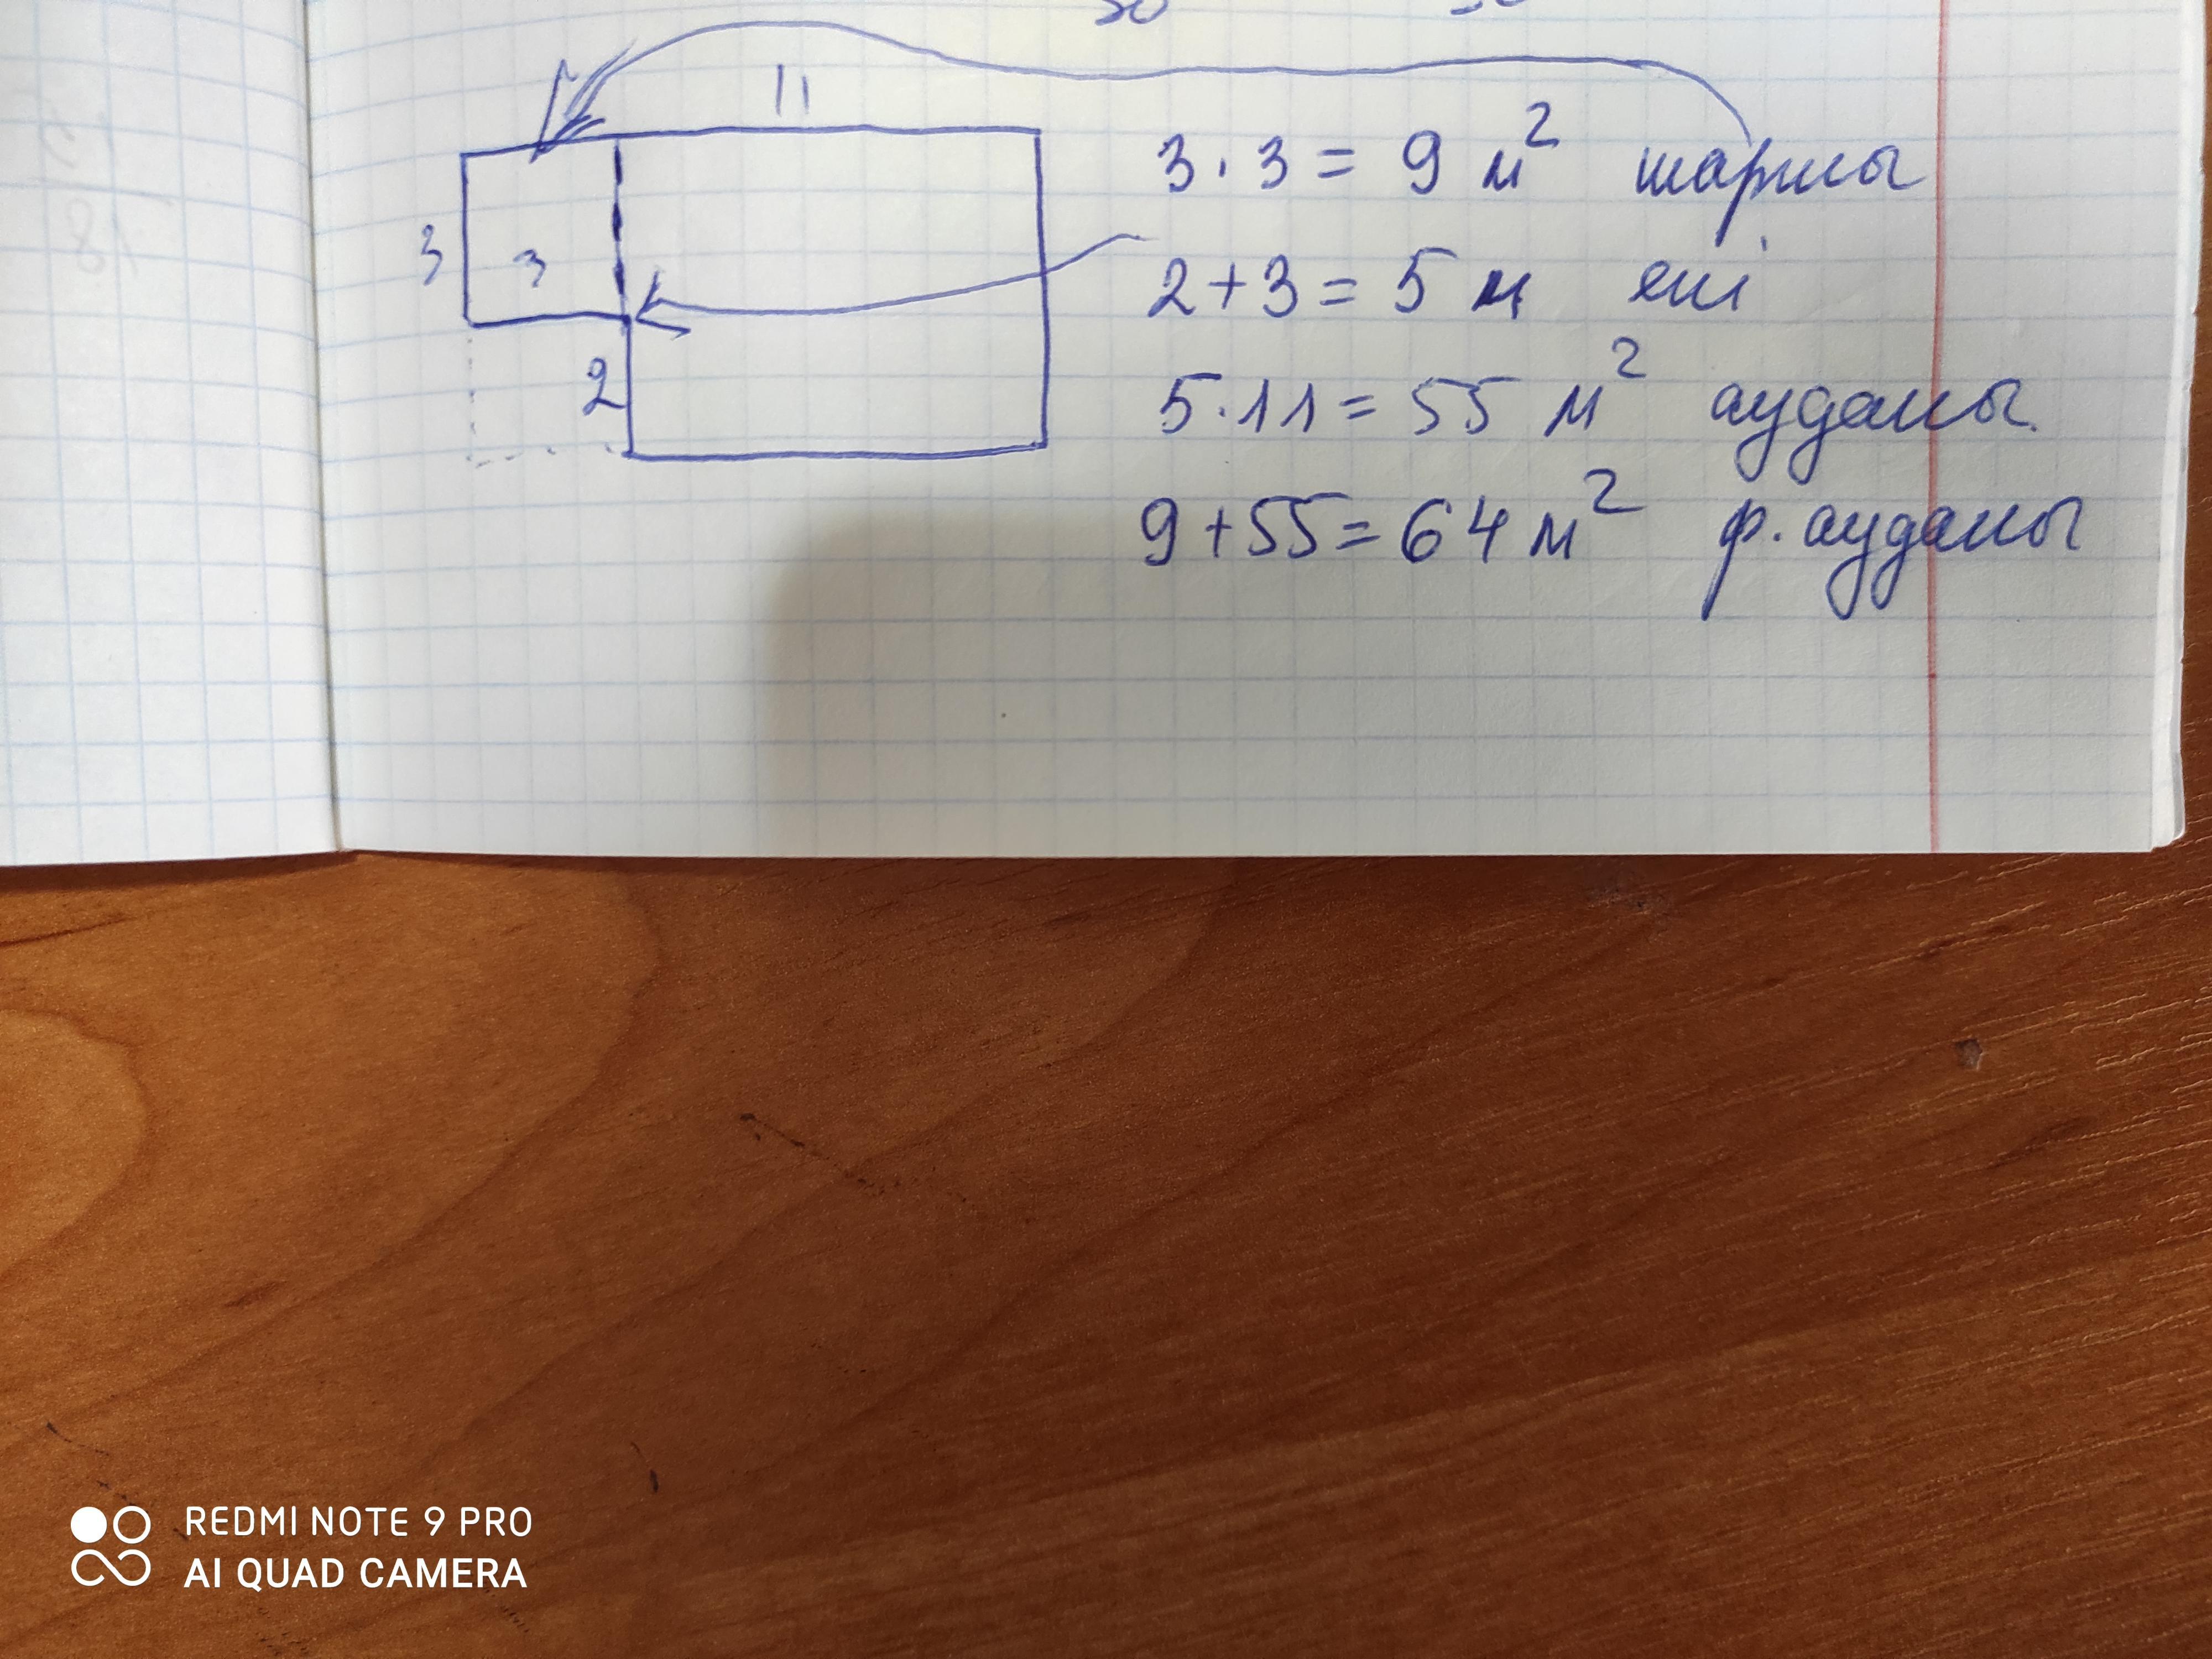 11
3 · 3 = 9 м² шаршы
3
3
2 + 3 = 5 м ені
2
5 · 11 = 55 м² ауданы
9 + 55 = 64 м² ф. ауданы
REDMI NOTE 9 PRO
AI QUAD CAMERA